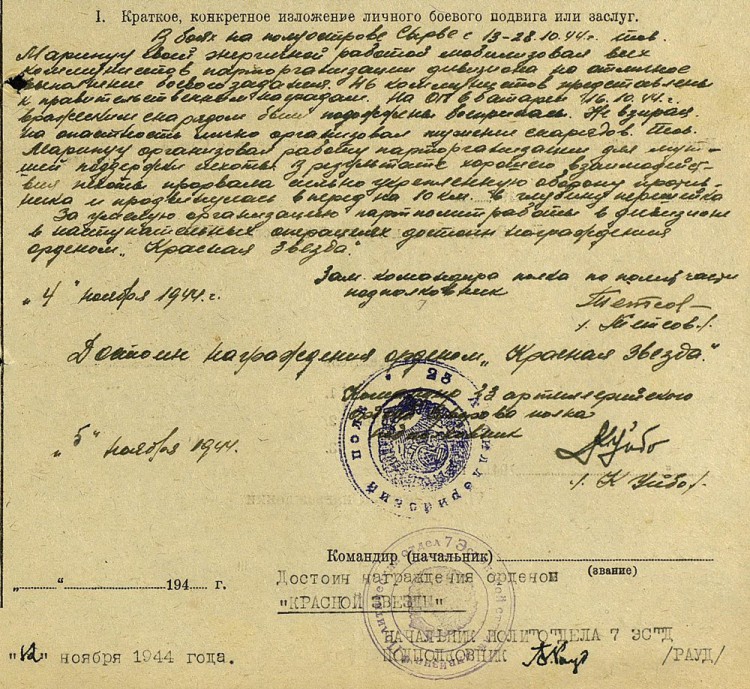 I. Краткое, конкретное изложение личного боевого подвига или заслуг.
В боях на полуострове Сырве с 13-28.10.44 г. тов.
Маринуу своей энергичной работой мобилизовал всех
коммунистов парторганизации дивизиона на отличное
выполнение боевого задания. коммунистов представлены
к правительственным наградам. На ОП батареи 16.10.44 г.
вражеским снарядом был подожжены Не взирая
на опастность лично организовал тушение снарядов. Тов.
Маринуу организовал работу парторганизации для луч-
шей поддержки пехоты. В результате хорошего взаимодейст-
вия пехоты прорвала сильно укрепленную оборону против-
ника и продвинулась вперед на 10 км. в глубину перешейка
За умелую организацию партполитработы в дивизионе
в наступательных операциях достоин награждения
орденом „Красная Звезда".
Зам. командира полка по полит части
„4" ноября 1944 г. подполковник
/Тетсов/.
Достоин награждения орденом „Красная Звезда".
23 артиллерийский полк
Командир 23 артиллерийского
полка
„5" ноября 1944.
/К Уйбо/.
Командир (начальник)
(звание)
„ " 194 г.
Достоин награждения орденом
"КРАСНОЙ ЗВЕЗДЫ"
НАЧАЛЬНИК ПОЛИТОТДЕЛА 7 ЭСТД
"12" ноября 1944 года. ПОДПОЛКОВНИК /РАУД/